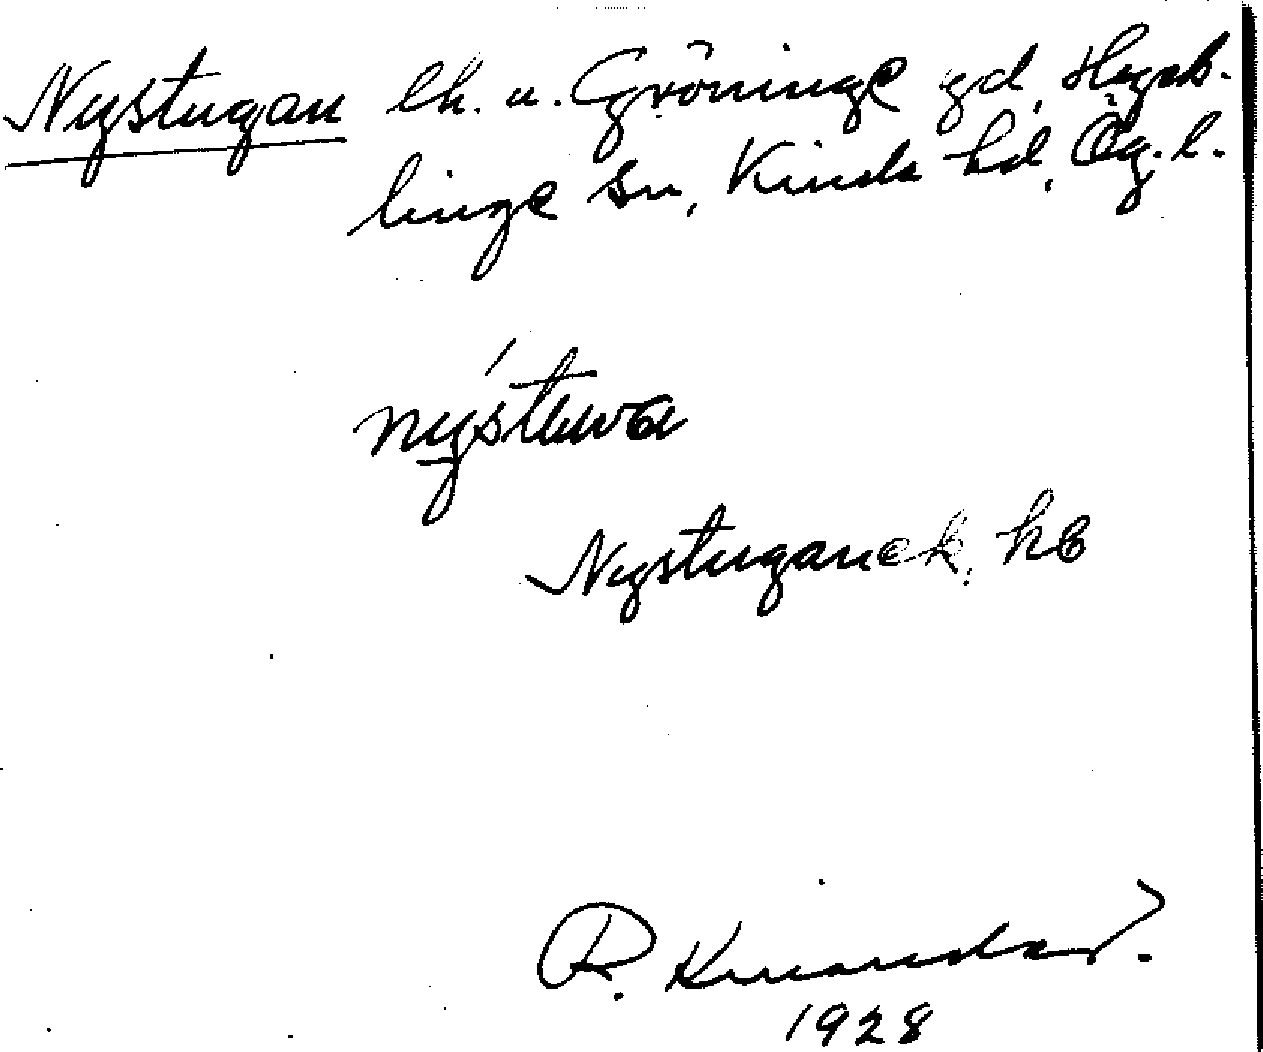 Nystugan lh. u. Gröninge gd, Hyck-
linge sn, Kinda hd, Ög. l.
nýstuwa
Nystugan ek. kb
R. Kinander.
1928